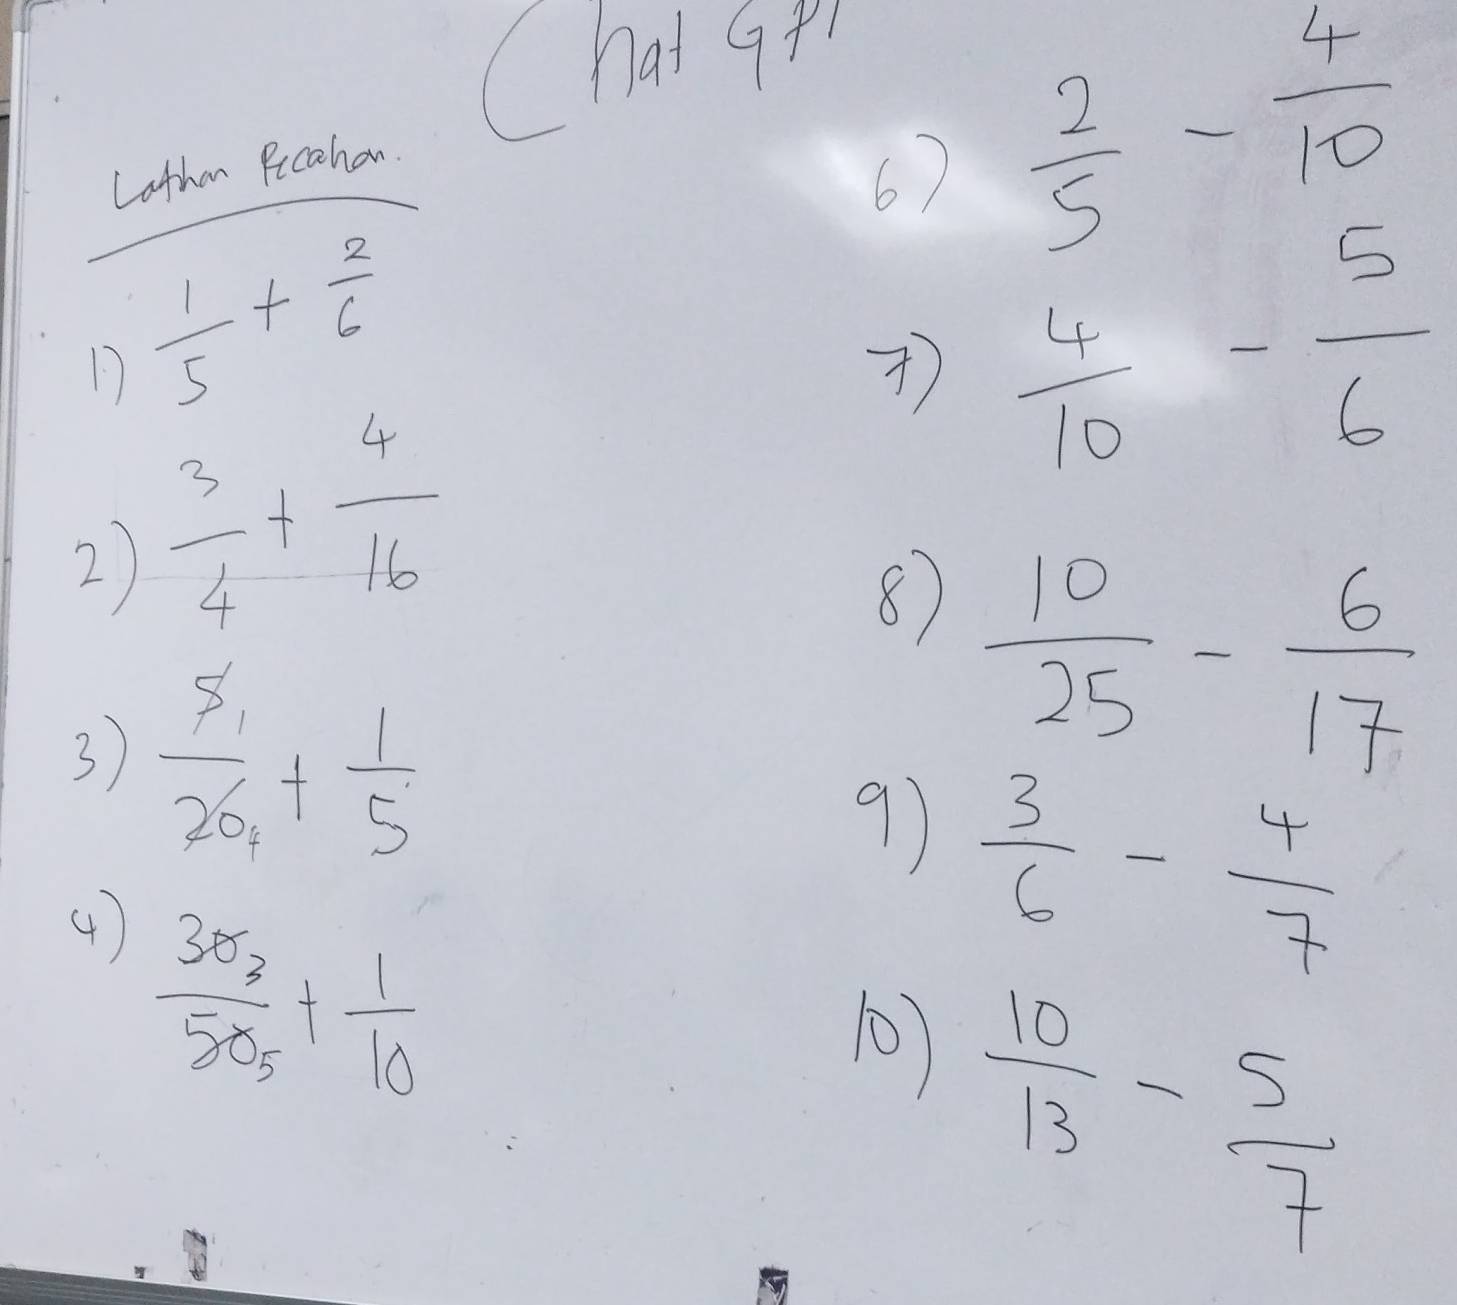 Chat GPT
Latihan Pecahan.
1) 1/5 + 2/6
2) 3/4 + 4/16
3) 5 1/20 4 + 1/5
4) 30 3/50 5 + 1/10
6) 2/5 - 4/10
7) 4/10 - 5/6
8) 10/25 - 6/17
9) 3/6 - 4/7
10) 10/13 - 5/7